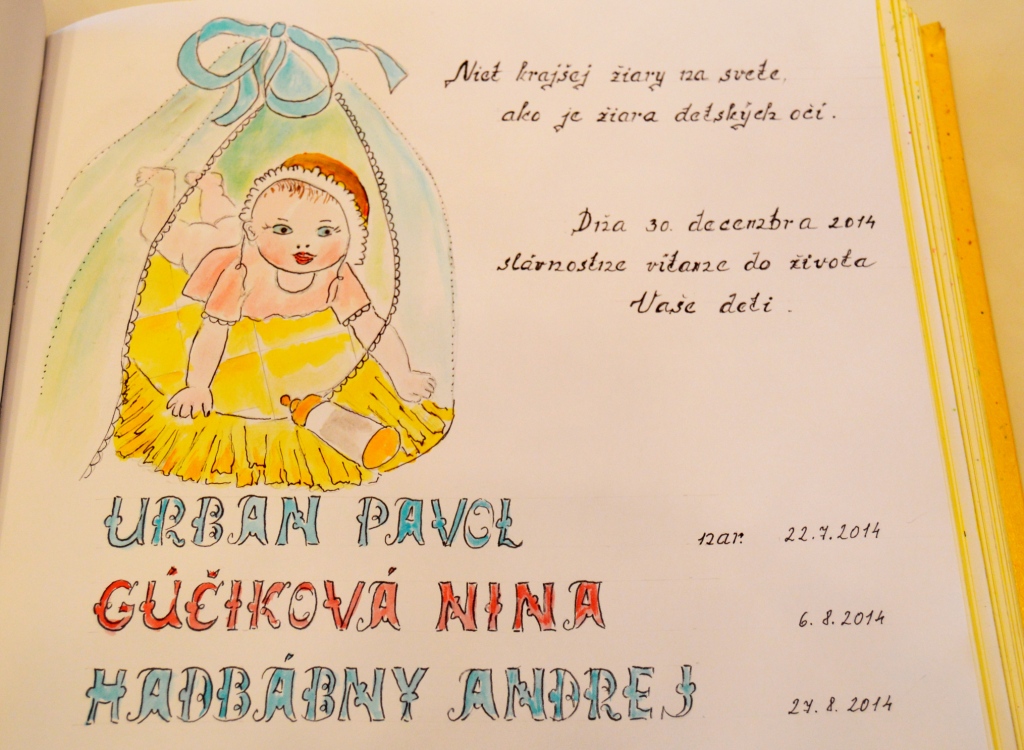 Niet krajšej žiary na svete,
ako je žiara detských očí.
Dňa 30. decembra 2014
slávnostne vítame do života
Vaše deti.
URBAN PAVOL nar. 22.7.2014
GÚČIKOVÁ NINA 6. 8. 2014
HADBÁBNY ANDREJ 27. 8. 2014